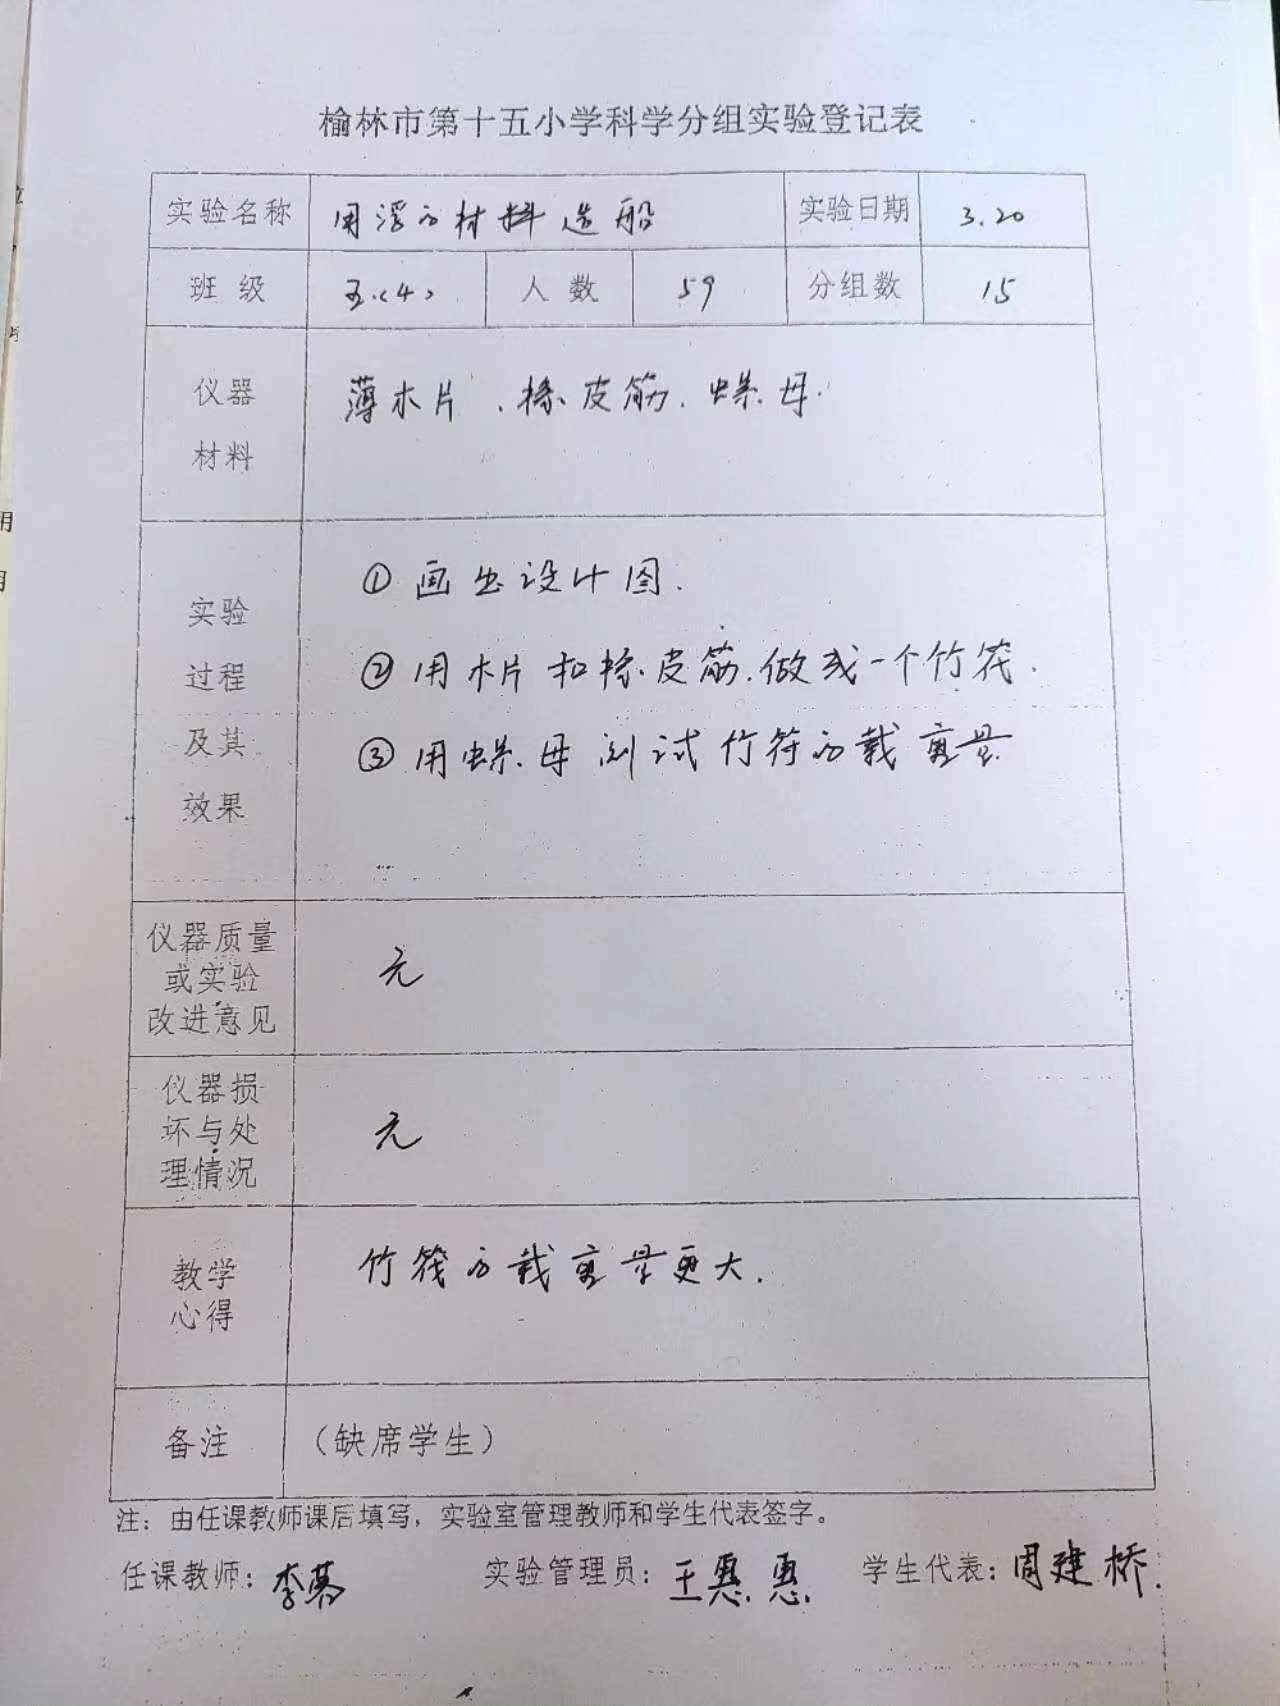 榆林市第十五小学科学分组实验登记表
实验名称 用浮的材料造船 实验日期 3.20
班 级 五(4) 人 数 59 分组数 15
仪器
材料
薄木片、橡皮筋、螺母.
实验
过程
及其
效果
①画出设计图.
②用木片和橡皮筋做成一个竹筏.
③用螺母测试竹筏的载重量
仪器质量
或实验
改进意见
无
仪器损
坏与处
理情况
无
教学
心得
竹筏的载重量更大.
备注 (缺席学生)
注：由任课教师课后填写，实验室管理教师和学生代表签字。
任课教师: 李 实验管理员: 王惠惠. 学生代表: 周建桥.